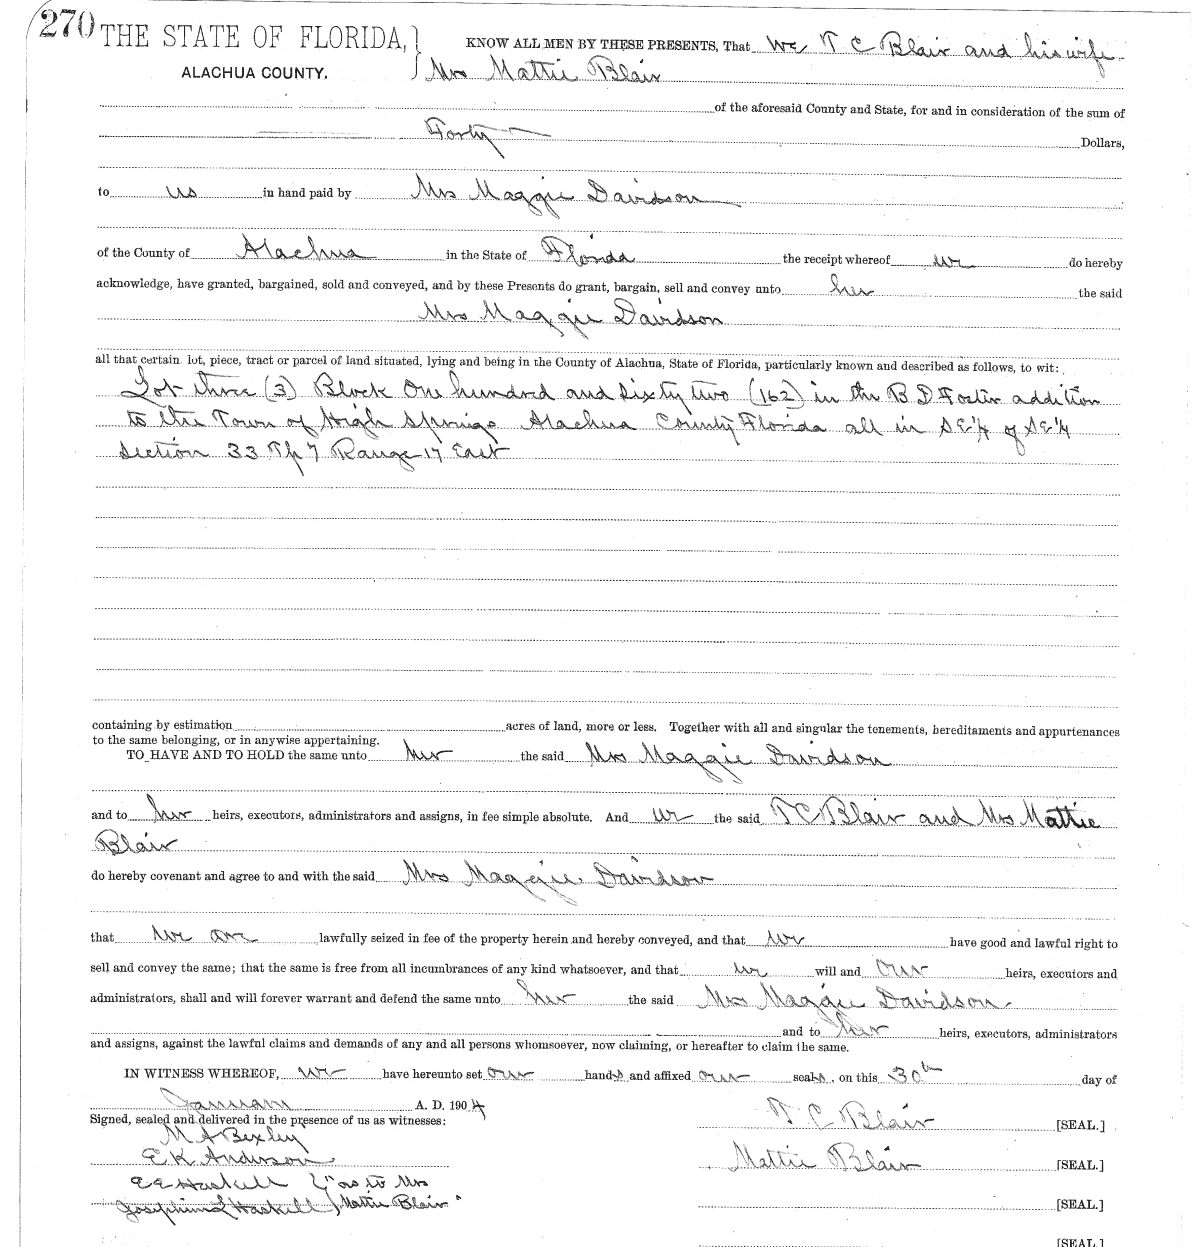 270 THE STATE OF FLORIDA, } KNOW ALL MEN BY THESE PRESENTS, That We T C Blair and his wife
ALACHUA COUNTY. Mrs Mattie Blair
of the aforesaid County and State, for and in consideration of the sum of
Forty Dollars,
to us in hand paid by Mrs Maggie Davidson
of the County of Alachua in the State of Florida the receipt whereof we do hereby
acknowledge, have granted, bargained, sold and conveyed, and by these Presents do grant, bargain, sell and convey unto her the said
Mrs Maggie Davidson
all that certain lot, piece, tract or parcel of land situated, lying and being in the County of Alachua, State of Florida, particularly known and described as follows, to wit:
Lot three (3) Block One hundred and Sixty two (162) in the B D Foster addition
to the Town of High Springs Alachua County Florida all in SE 1/4 of SE 1/4
Section 33 Tp 7 Range 17 East
containing by estimation acres of land, more or less. Together with all and singular the tenements, hereditaments and appurtenances
to the same belonging, or in anywise appertaining.
TO HAVE AND TO HOLD the same unto her the said Mrs Maggie Davidson
and to her heirs, executors, administrators and assigns, in fee simple absolute. And we the said T C Blair and Mrs Mattie
Blair
do hereby covenant and agree to and with the said Mrs Maggie Davidson
that we are lawfully seized in fee of the property herein and hereby conveyed, and that we have good and lawful right to
sell and convey the same; that the same is free from all incumbrances of any kind whatsoever, and that we will and our heirs, executors and
administrators, shall and will forever warrant and defend the same unto her the said Mrs Maggie Davidson
and to her heirs, executors, administrators
and assigns, against the lawful claims and demands of any and all persons whomsoever, now claiming, or hereafter to claim the same.
IN WITNESS WHEREOF, we have hereunto set our hands and affixed our seals, on this 30th day of
January A. D. 1904
Signed, sealed and delivered in the presence of us as witnesses: T C Blair [SEAL.]
M A Bexley
E K Anderson Mattie Blair [SEAL.]
E E Haskell } "as to Mrs
Josephine L Haskell } Mattie Blair" [SEAL.]
[SEAL.]